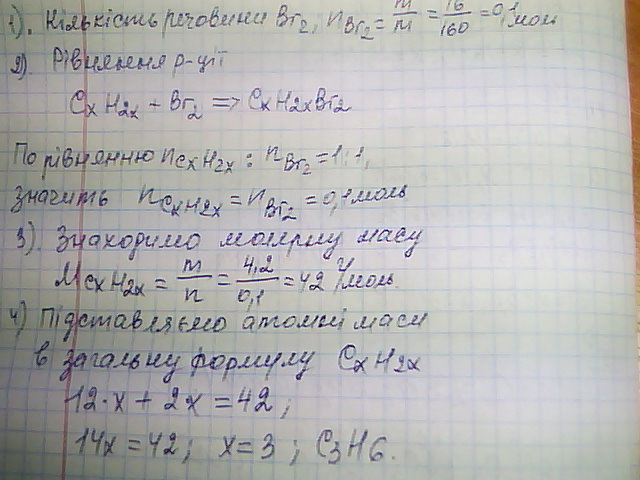 1). Кількість речовини Br₂, n Br₂ = m/m = 16/160 = 0,1 моль
2). Рівняння р-ції
CxH2x + Br₂ => CxH2xBr₂
По рівнянню n CxH2x : n Br₂ = 1:1,
значить n CxH2x = n Br₂ = 0,1 моль
3). Знаходимо молярну масу
M CxH2x = m/n = 4,2/0,1 = 42 г/моль.
4) Підставляємо атомні маси
в загальну формулу CxH2x
12·x + 2x = 42;
14x = 42; x = 3; C₃H₆.